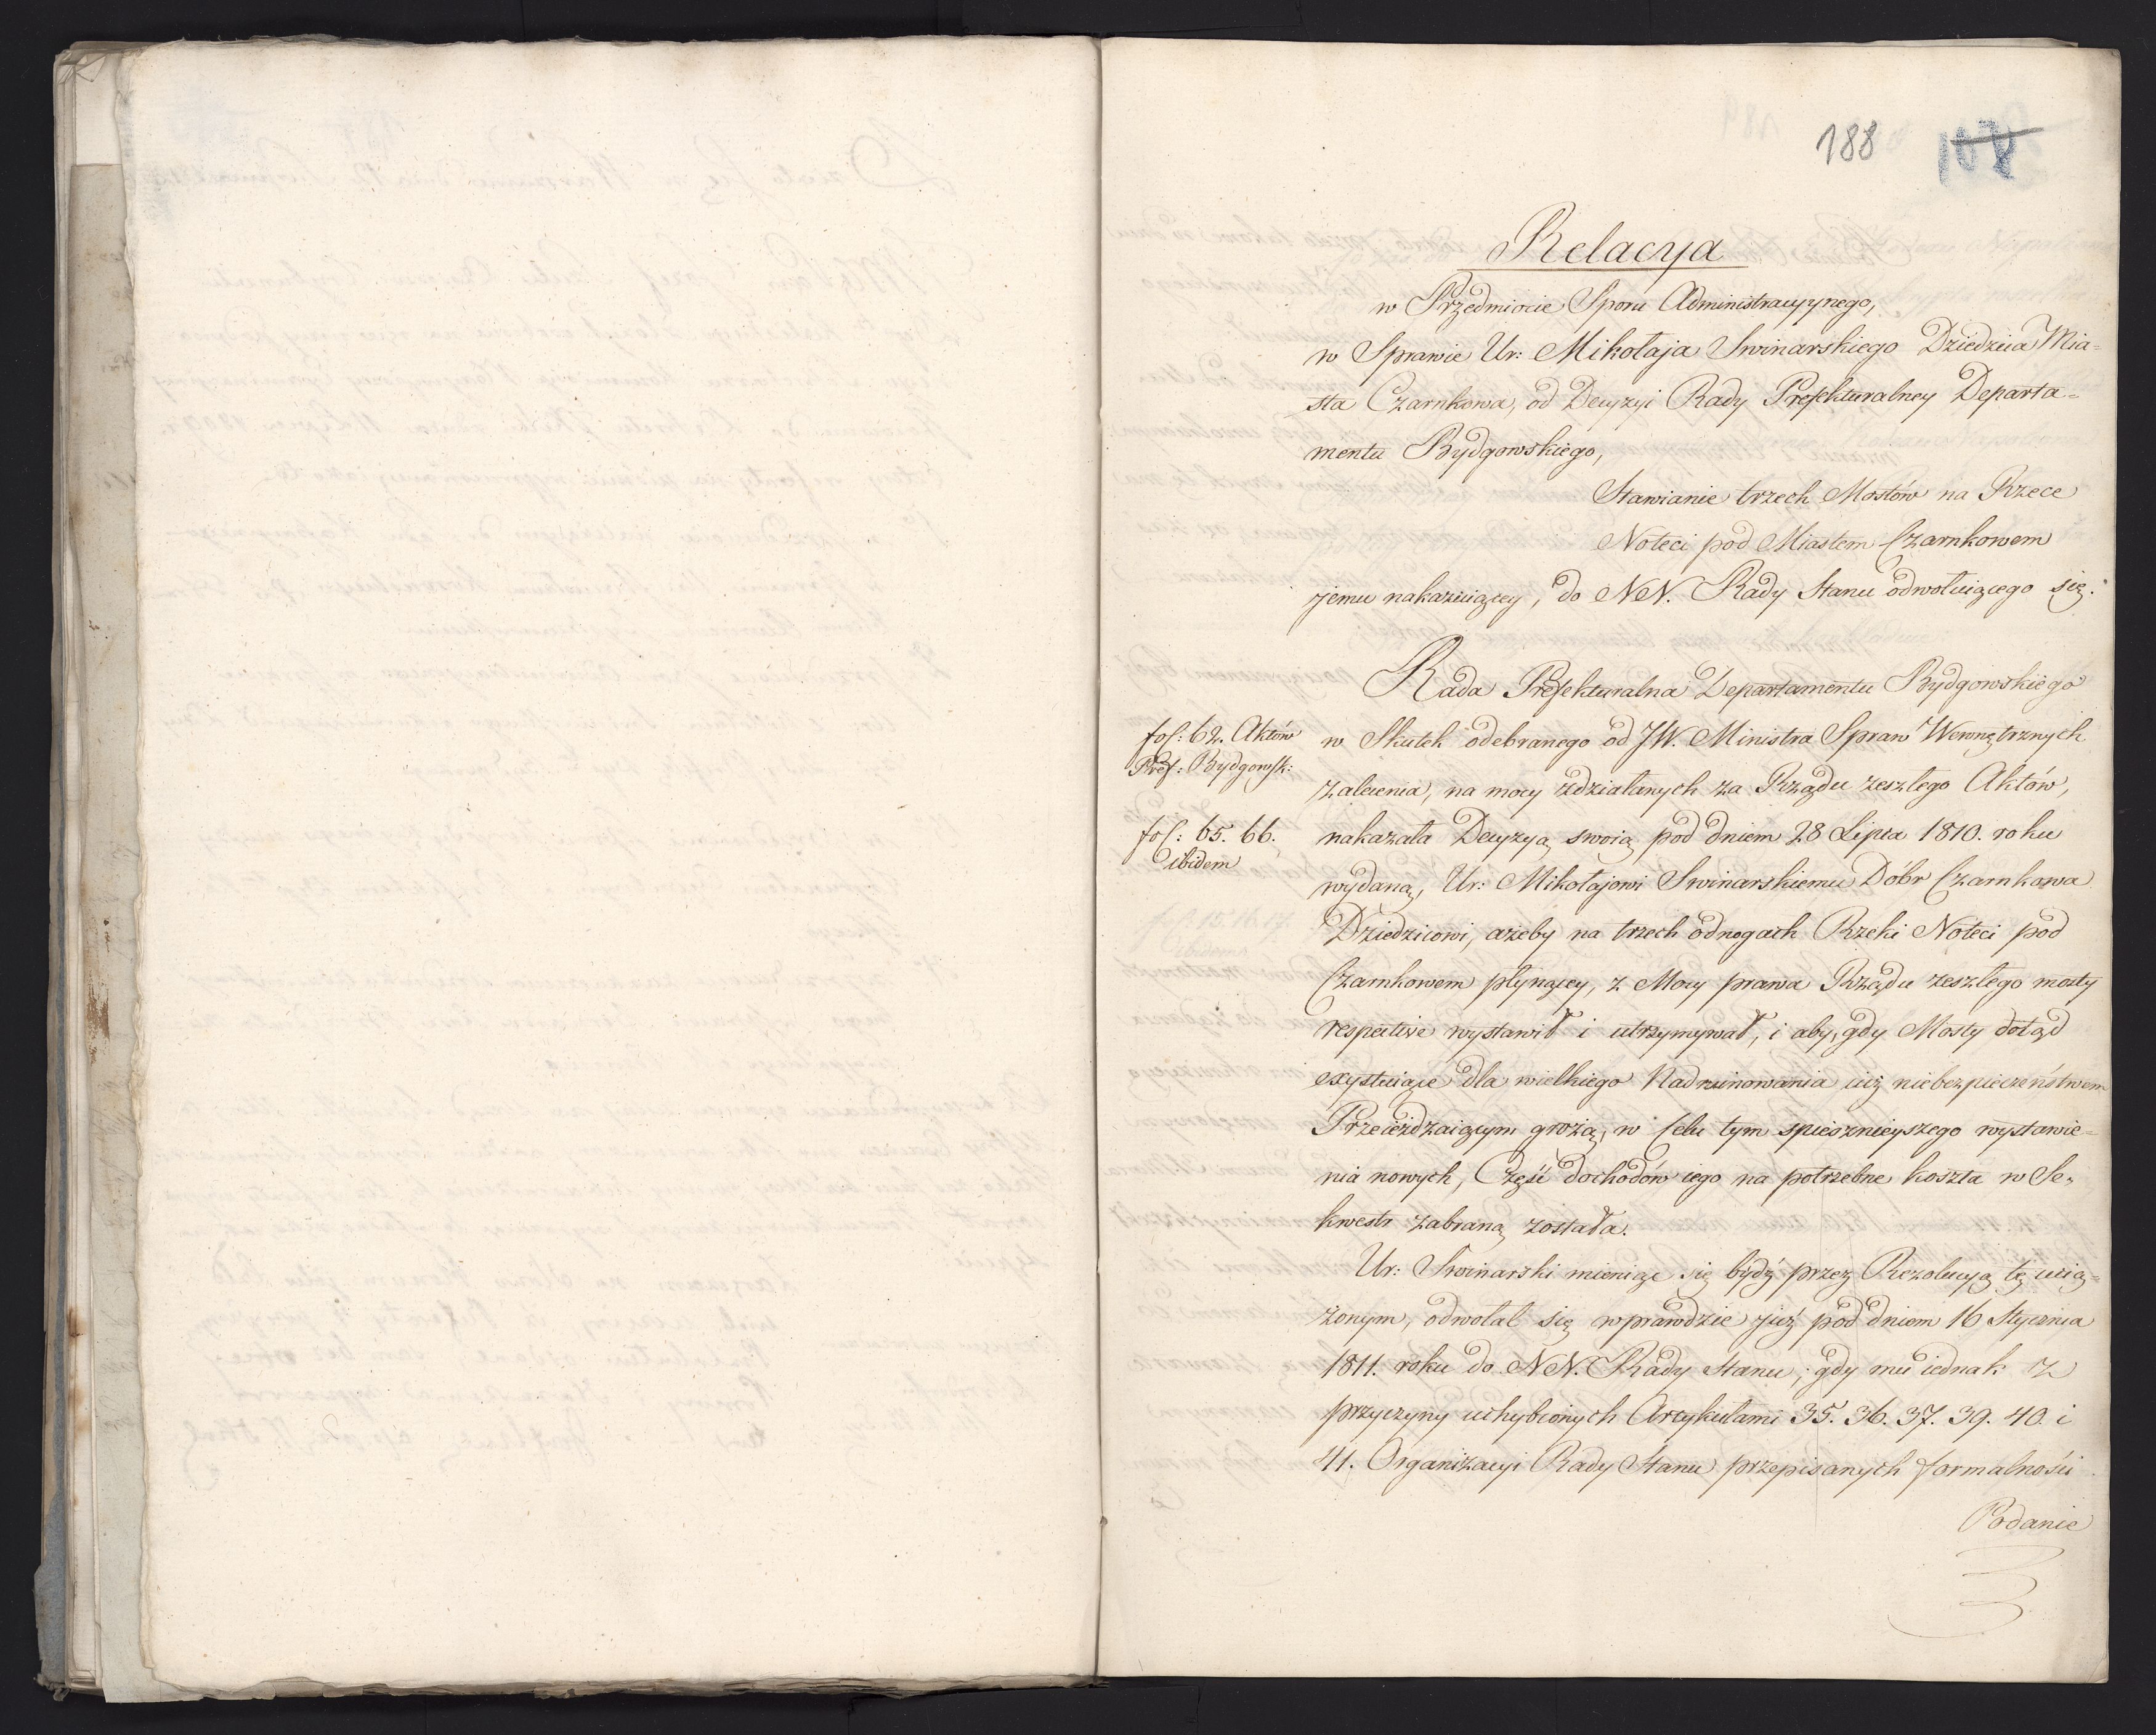 188 107
Relacya
w Przedmiocie Sporu Administracyynego,
w Sprawie Ur: Mikołaja Swinarskiego Dziedzica Mia=
sta Czarnkowa, od Decyzyi Rady Prefekturalney Departa=
mentu Bydgowskiego,
Stawianie trzech Mostów na Rzece
Noteci pod Miastem Czarnkowem
jemu nakazuiącey, do NN. Rady Stanu odwołuiącego się.
Rada Prefekturalna Departamentu Bydgowskiego
fol: 62. Aktów
Pref: Bydgowsk:
w Skutek odebranego od JW. Ministra Spraw Wewnętrznych
zalecenia, na mocy zdziałanych za Rządu zeszłego Aktów,
fol: 65. 66.
ibidem
nakazała Decyzyą swoią pod dniem 28 Lipca 1810. roku
wydaną, Ur: Mikołajowi Swinarskiemu Dóbr Czarnkowa
Dziedzicowi, ażeby na trzech odnogach Rzeki Noteci pod
Czarnkowem płynącey, z Mocy prawa Rządu zeszłego mosty
respective wystawił i utrzymywał, i aby, gdy Mosty dotąd
exystuiące dla wielkiego Nadruinowania iuż niebezpieczeństwem
Przeieżdzaiącym grożą, w Celu tym spieszniejszego wystawie=
nia nowych, Część dochodów iego na potrzebne koszta w Se=
kwestr zabraną została.
Ur: Swinarski mieniąc się bydź przez Rezolucyą tę ucią=
żonym, odwołał się wprawdzie już pod dniem 16 Stycznia
1811. roku do NN. Rady Stanu, gdy mu iednak z
przyczyny uchybionych Artykułami 35. 36. 37. 39. 40. i
41. Organizacyi Rady Stanu przepisanych formalności
Podanie